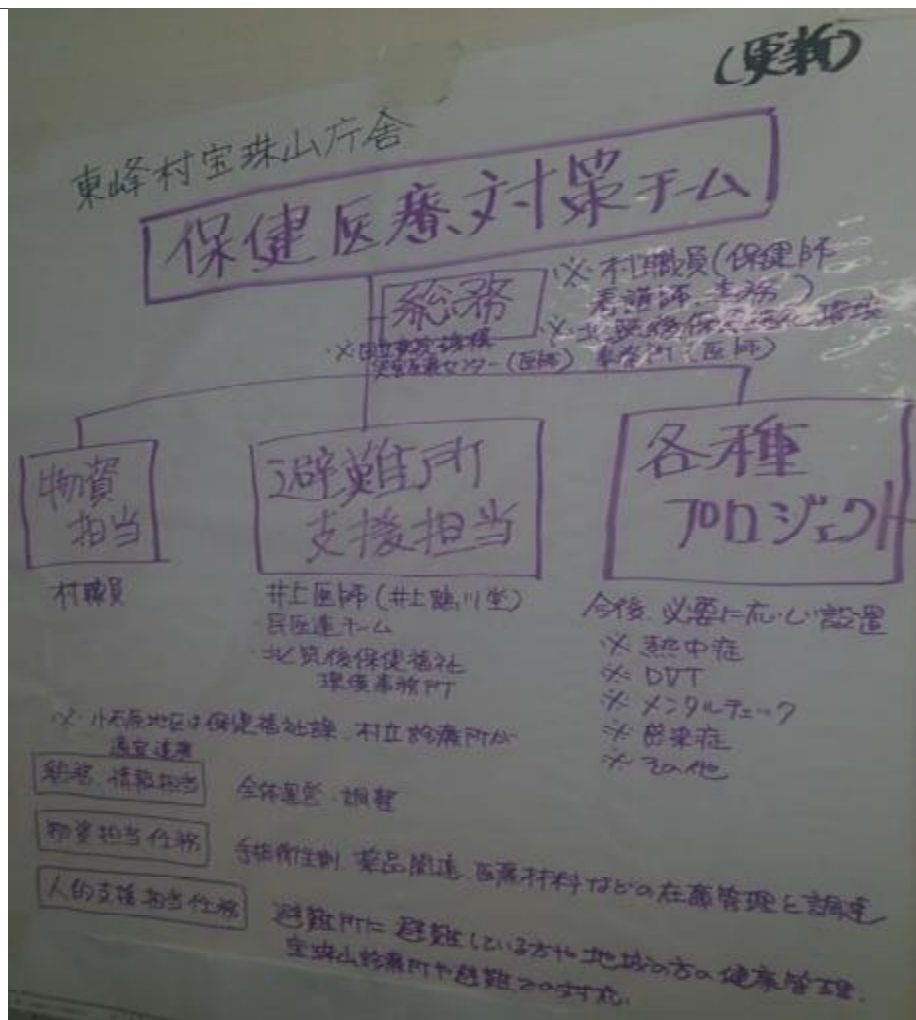 (更新)
東峰村宝珠山庁舎
保健医療対策チーム
総務
※村職員(保健師
看護師、事務)
※北筑後保健福祉環境
事務所(医師)
※国立病院機構
災害医療センター(医師)
物資
担当
村職員
避難所
支援担当
井上医師(井上鶴川堂)
民医連チーム
北筑後保健福祉
環境事務所
各種
プロジェクト
今後、必要に応じて設置
※熱中症
※DVT
※メンタルチェック
※感染症
※その他
※小石原地区は保健福祉課、村立診療所が
適宜連携
総務、情報担当
全体運営・調整
物資担当任務
手指衛生剤、薬品関連、医療材料などの在庫管理と調達
人的支援担当任務
避難所に避難している方や地域の方の健康管理、
宝珠山診療所や避難での対応。